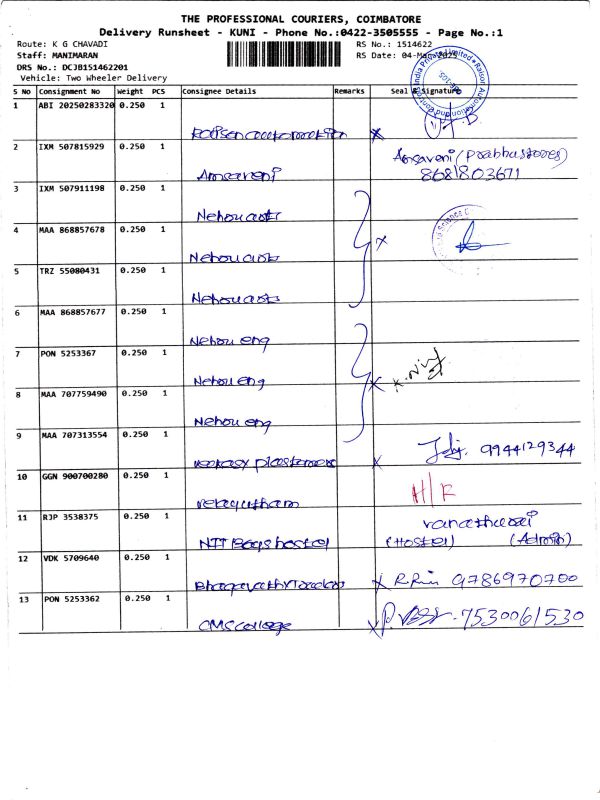 THE PROFESSIONAL COURIERS, COIMBATORE
Delivery Runsheet - KUNI - Phone No.:0422-3505555 - Page No.:1
Route: K G CHAVADI RS No.: 1514622
Staff: MANIMARAN RS Date: 04-Mar-2025
DRS No.: DCJB151462201
Vehicle: Two Wheeler Delivery
S No Consignment No Weight PCS Consignee Details Remarks Seal & Signature
1 ABI 20250283320 0.250 1
2 IXM 507815929 0.250 1 Amsaveni Amsaveni (Prabhustores)
8681803671
3 IXM 507911198 0.250 1 Nehru arts
4 MAA 868857678 0.250 1 Nehru arts
5 TRZ 55080431 0.250 1 Nehru arts
6 MAA 868857677 0.250 1 Nehru eng
7 PON 5253367 0.250 1 Nehru eng
8 MAA 707759490 0.250 1 Nehru eng
9 MAA 707313554 0.250 1 9944129344
10 GGN 900700280 0.250 1 velayutham H/R
11 RJP 3538375 0.250 1 NTT Boys hostel
(Hostel) (Admin)
12 VDK 5709640 0.250 1 9786970700
13 PON 5253362 0.250 1 CMS College 7530061530